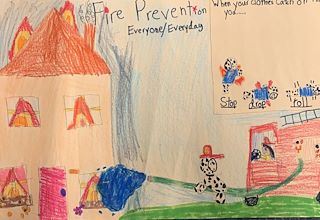 Fire Prevention
Everyone/Everyday
When your clothes catch on
you....
Stop drop roll